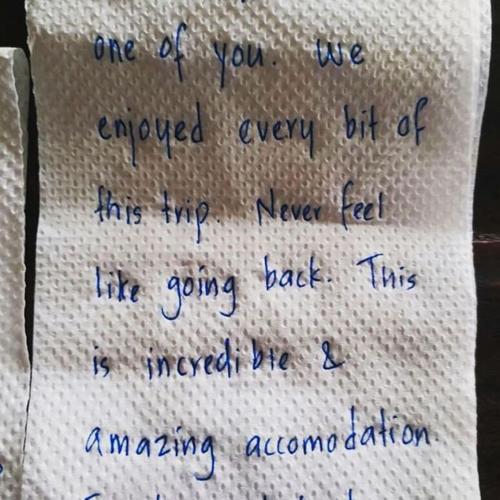 one of you. We
enjoyed every bit of
this trip. Never feel
like going back. This
is incredible &
amazing accomodation.